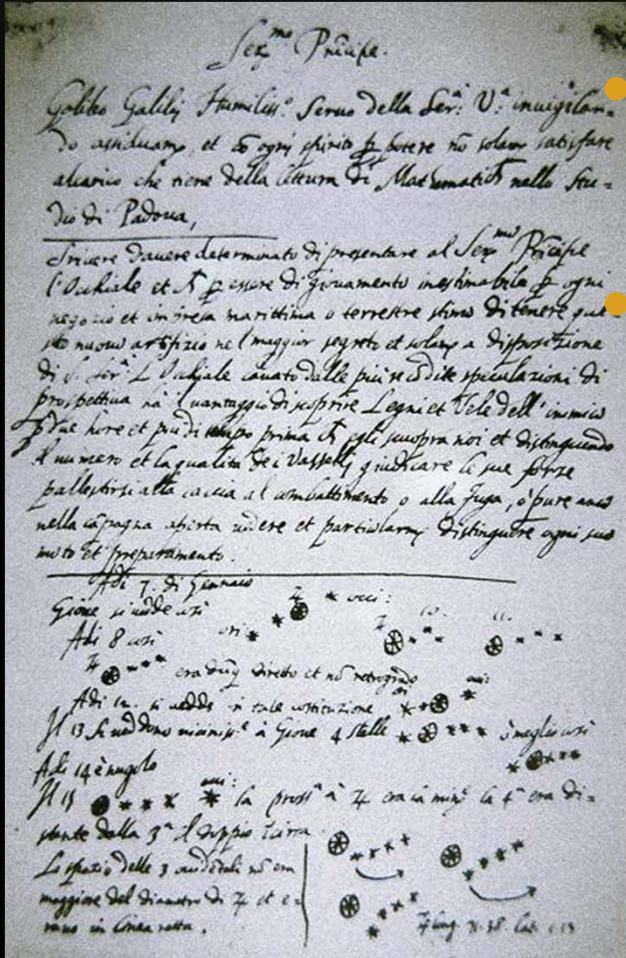 Ser.mo Principe.
Galileo Galilei Humiliss.o Servo della Ser.a V.a invigilan=
do assiduam.te, et cō ogni spirito p potere nō solam satisfare
alcarico che tiene della lettura di Mathematich nello Stu=
dio di Padova,
Scrivere davere determinato di presentare al Ser.mo Prīcipe
l'Occhiale et p essere di giovamento inestimabile p ogni
negozio et impresa marittima o terrestre stimo di tenere que
sto nuovo artifizio nel maggior segreto et solam a disposizione
di S. Ser.a L'Occhiale cavato dalle più recōdite speculazioni di
prospettiva ha il vantaggio di scoprire Legni et Vele dell'inimico
p due hore et più di tempo prima ch egli scuopra noi et distinguendo
il numero et la qualità de i Vasselli giudicare le sue forze
pallestirsi alla caccia al combattimento o alla fuga, o pure anco
nella cāpagna aperta vedere et particolarm distinguere ogni suo
moto et preparamento.
Adi 7. di Gennaio
Gione si vedde così ori: occi:
Adi 8 così 10. 11.
era dūq diretto et nō retrogrado
Adi 12. si vedde in tale costituzione occi:
Il 13 si veddono à Giove 4 stelle ò meglio così
Adi 14 è nugolo
Il 15 occi: la pross.a à ♃ era la min.e la 4.a era di=
stante dalla 3.a il doppio circa
Lo spazio delle 3 occidētali nō era
maggiore del diametro di ♃ et e=
rano in linea retta.
♃ long. 71.38 lat. 1.13